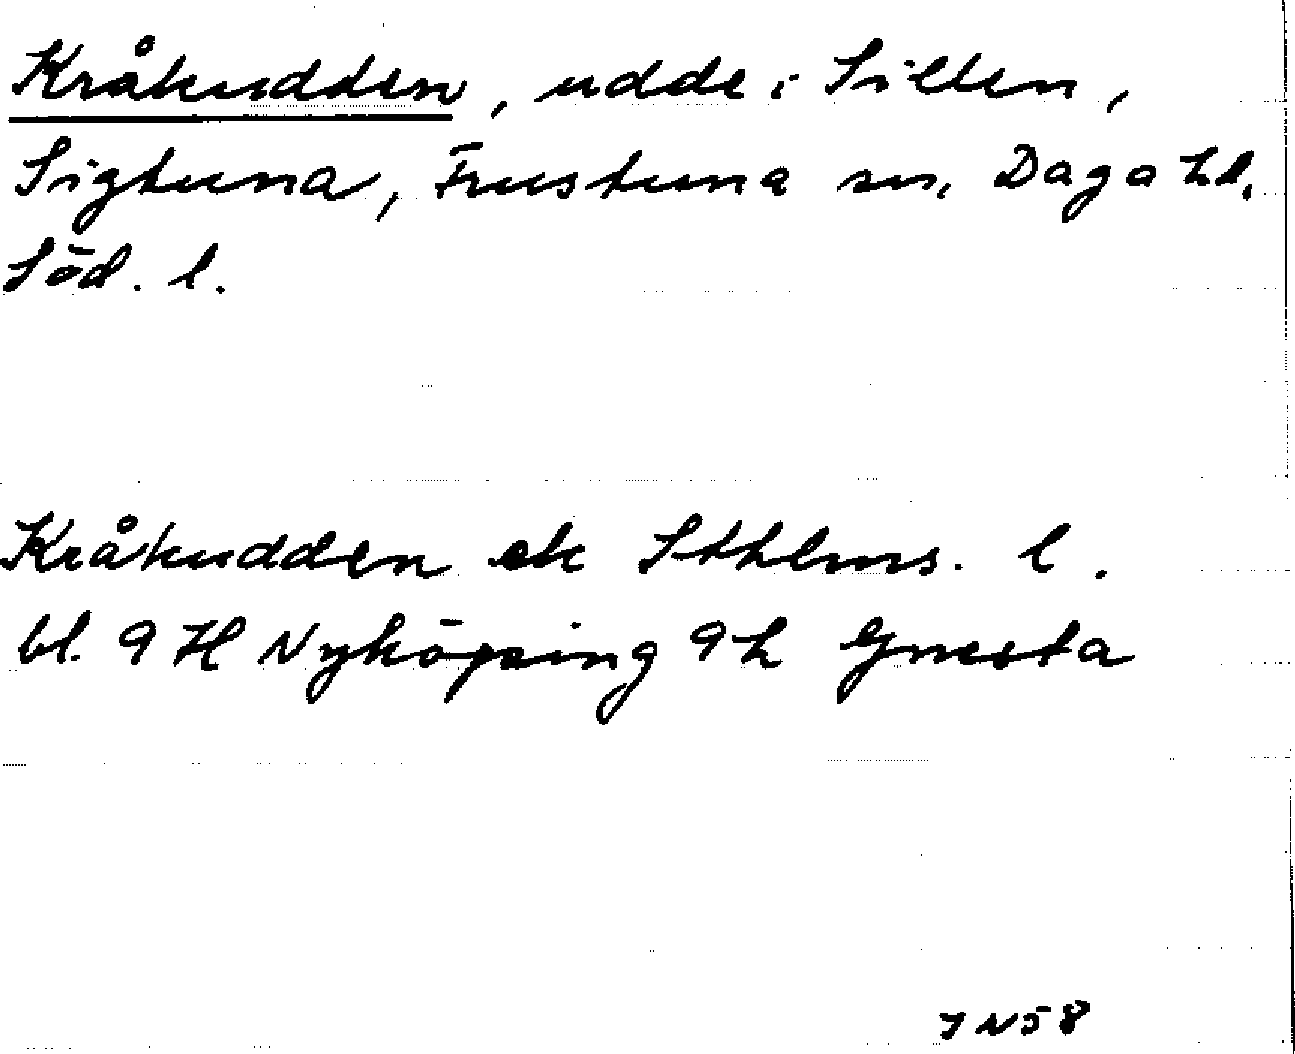 Kråkudden, udde i Sillen,
Sigtuna, Frustuna sn, Daga hd.
Söd. l.
Kråkudden ek Sthlms. l.
bl. 9 H Nyköping 9 h Gnesta
JN58